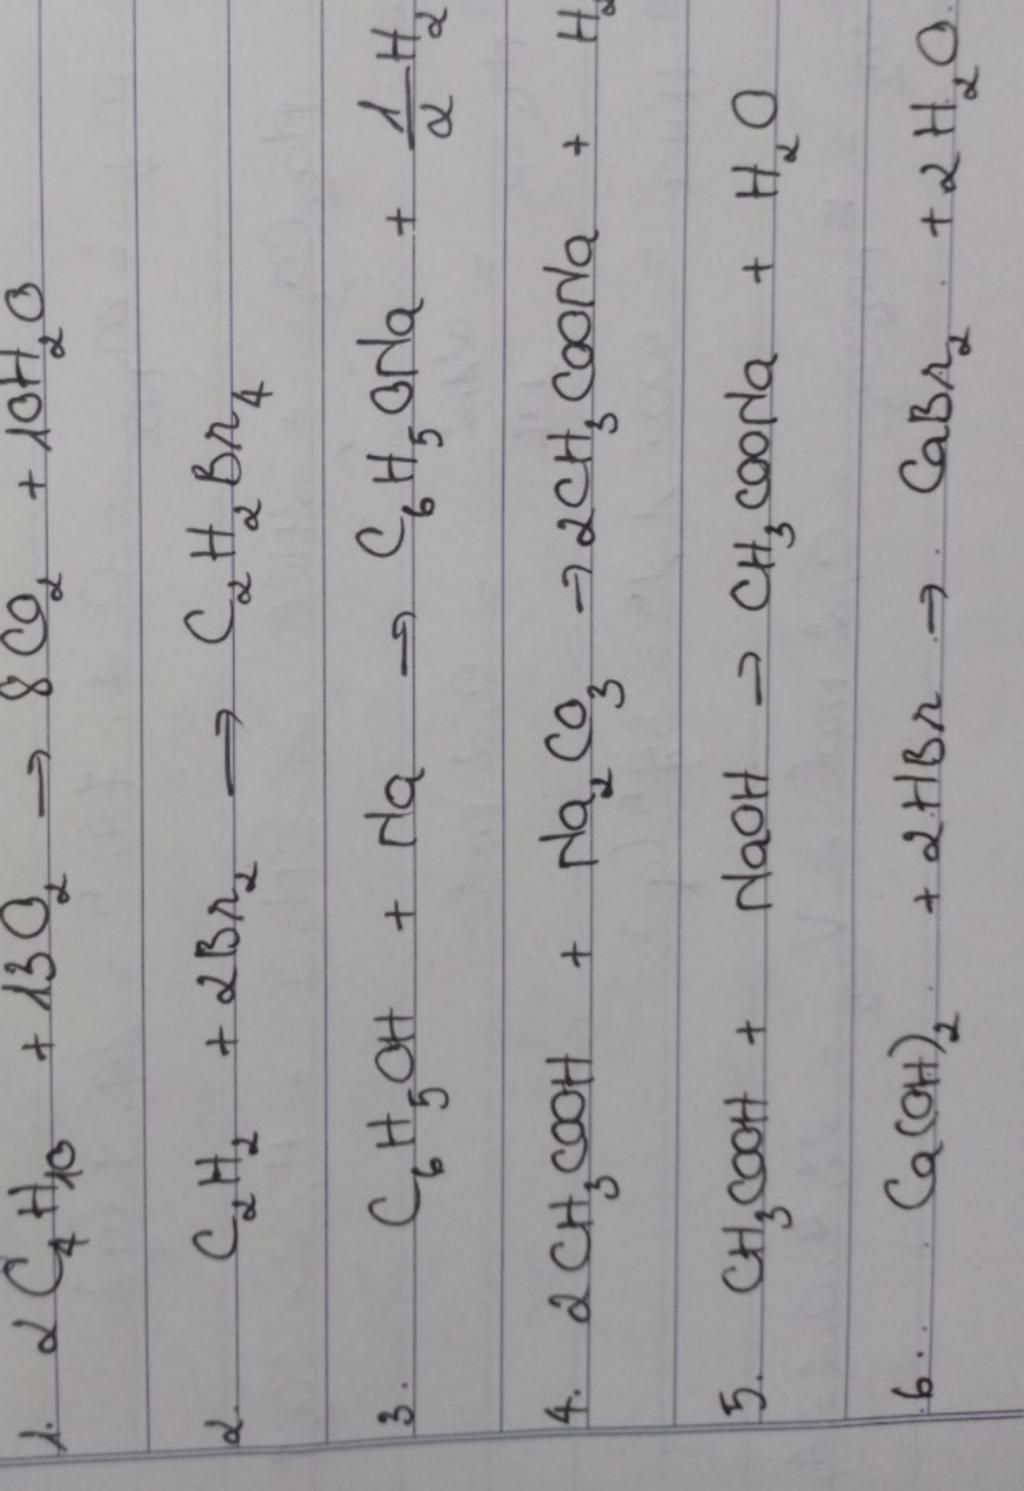 1. 2C₄H₁₀ + 13O₂ → 8CO₂ + 10H₂O
2. C₂H₂ + 2Br₂ → C₂H₂Br₄
3. C₆H₅OH + Na → C₆H₅ONa + 1/2 H₂
4. 2CH₃COOH + Na₂CO₃ → 2CH₃COONa + H₂
5. CH₃COOH + NaOH → CH₃COONa + H₂O
6. Ca(OH)₂ + 2HBr → CaBr₂ + 2H₂O.